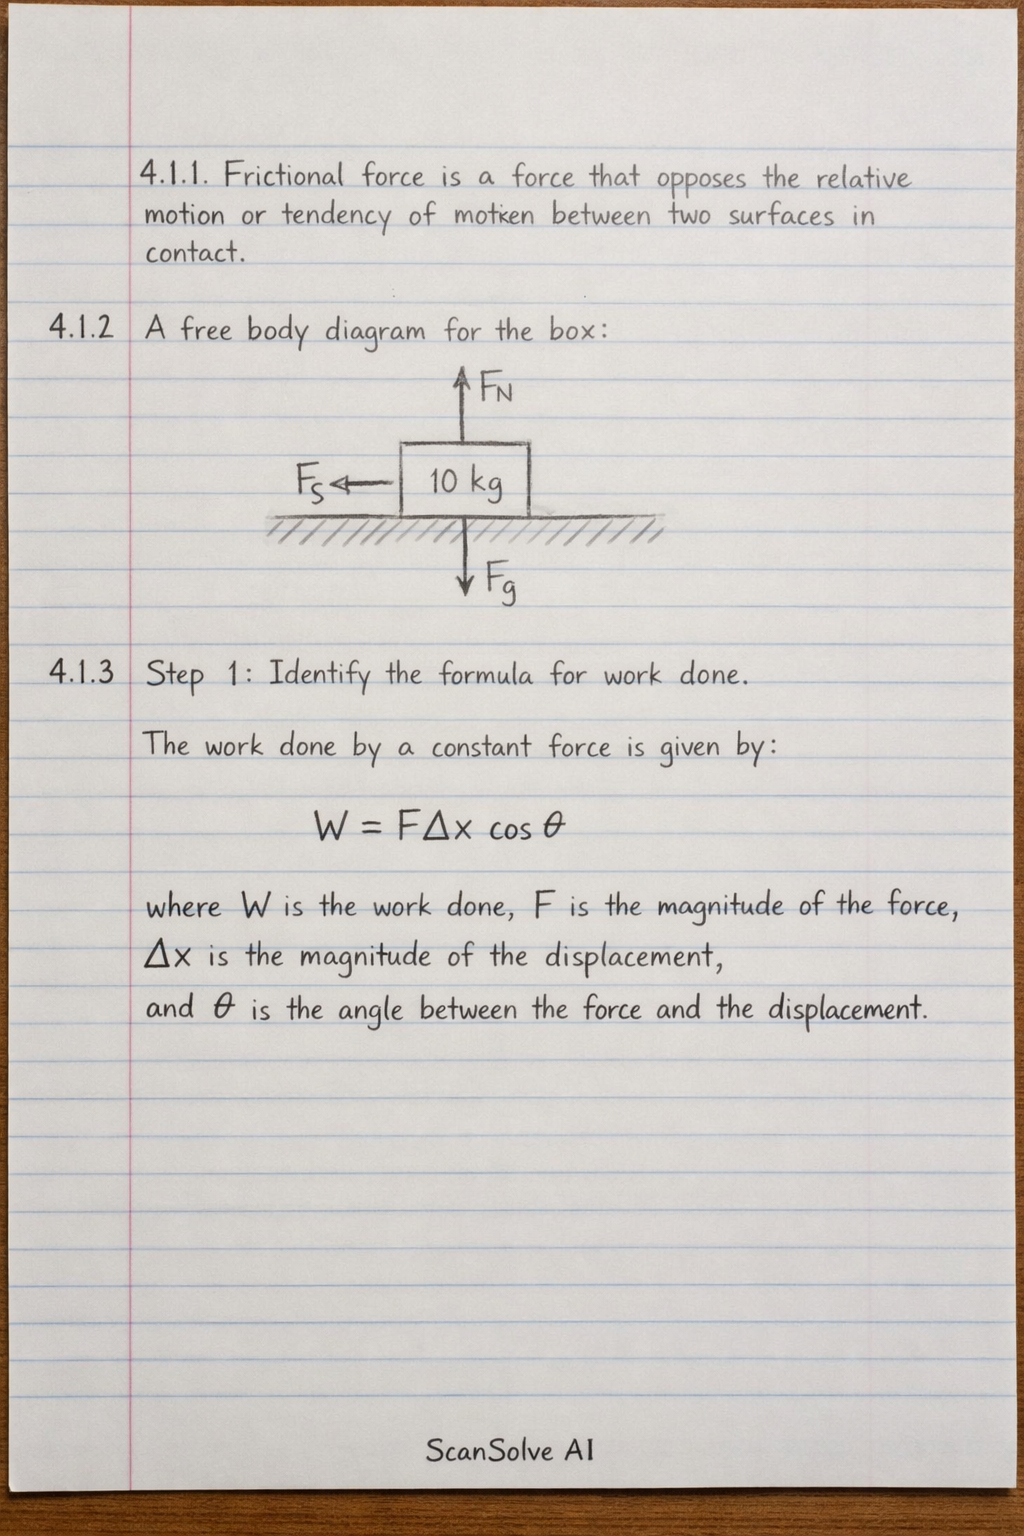 4.1.1. Frictional force is a force that opposes the relative
motion or tendency of motken between two surfaces in
contact.
4.1.2 A free body diagram for the box:
FN
Fs 10 kg
Fg
4.1.3 Step 1: Identify the formula for work done.
The work done by a constant force is given by:
W = FΔx cos θ
where W is the work done, F is the magnitude of the force,
Δx is the magnitude of the displacement,
and θ is the angle between the force and the displacement.
ScanSolve AI